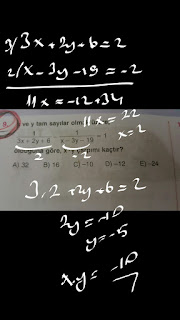 3/ 3x + 2y + 6 = 2
2/ x - 3y - 19 = -2
11x = -12 + 34
11x = 22
x = 2
ve y tam sayılar olm
1/(3x + 2y + 6) 3y - 19 = 1
2 -2
olduğuna göre, x·y çarpımı kaçtır?
A) 32 B) 16 C) -10 D) -12 E) -24
3.2 + 2y + 6 = 2
2y = -10
y = -5
x.y = -10